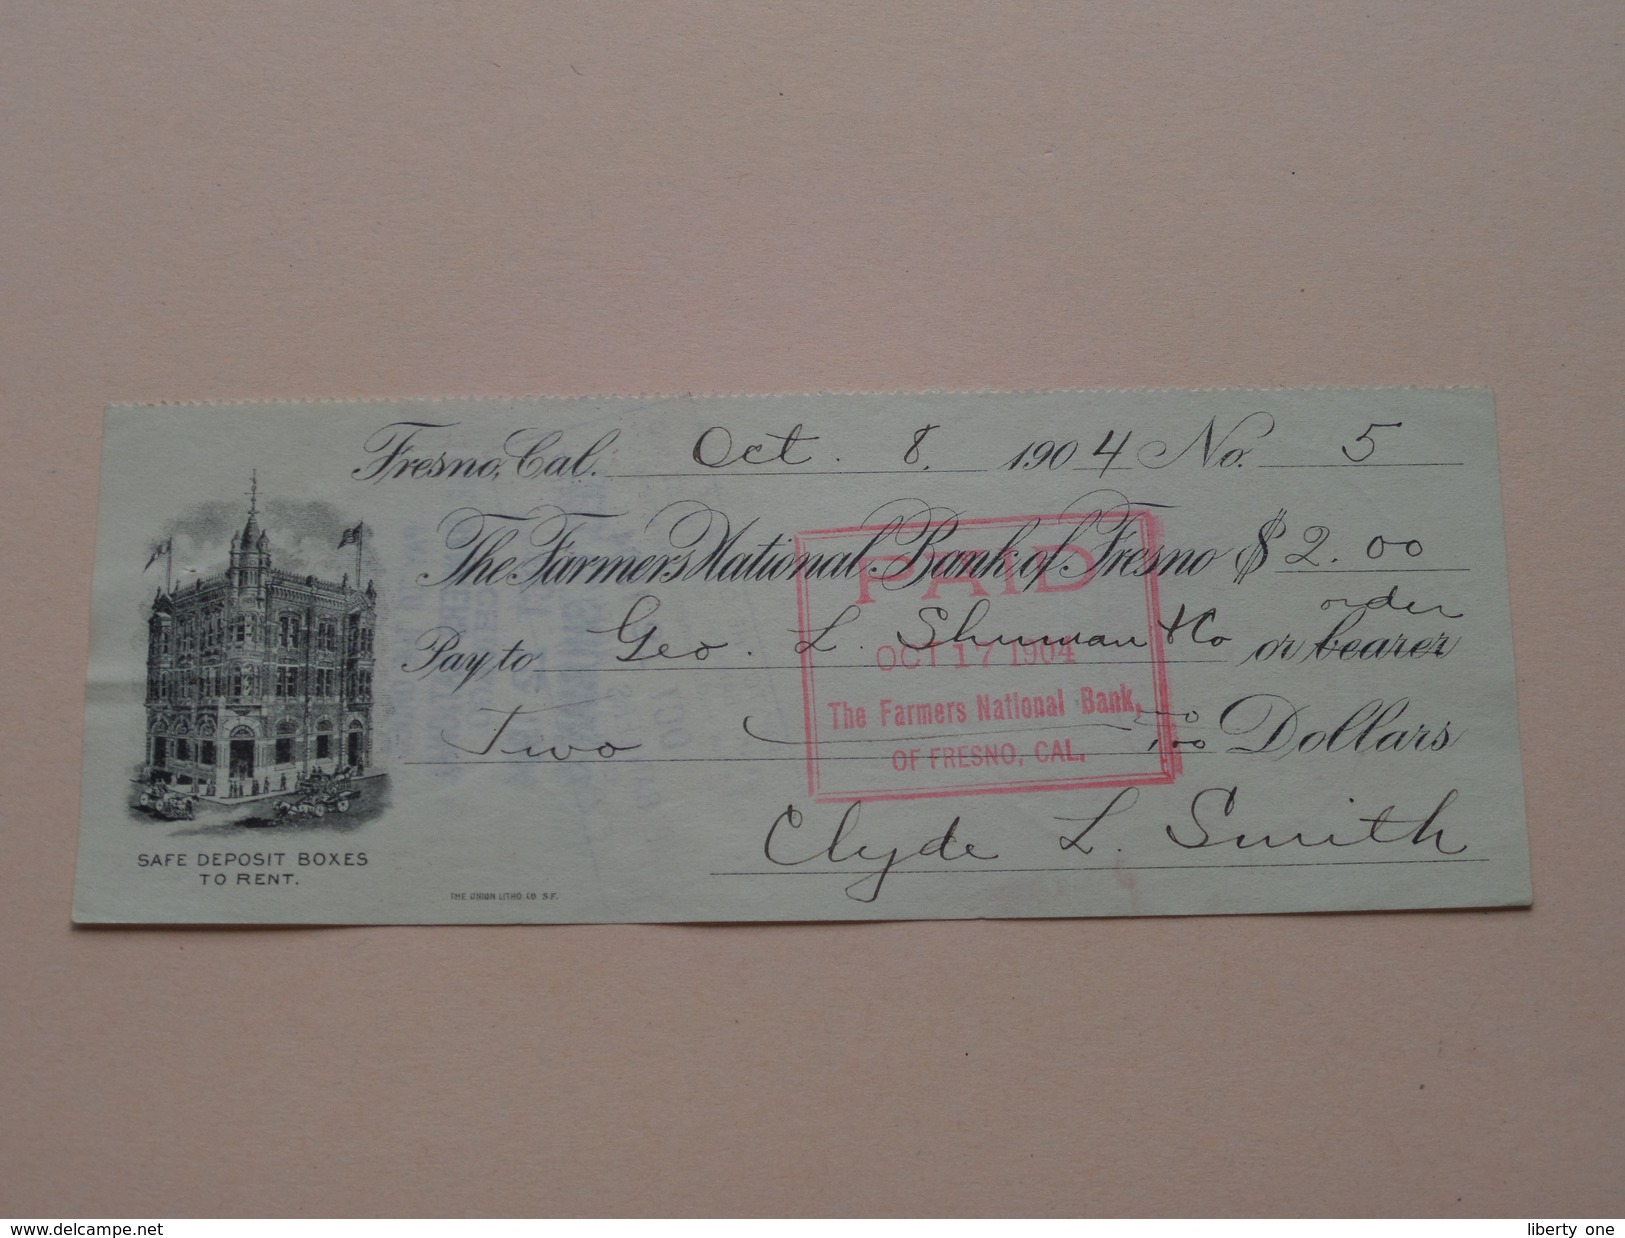 Fresno, Cal. Oct. 8. 1904 No. 5
The Farmers National Bank of Fresno $ 2.00
order
Pay to Geo. L. Shuman & Co or bearer
Two 00/100 Dollars
Clyde L. Smith
PAID
OCT 17 1904
The Farmers National Bank,
OF FRESNO, CAL.
SAFE DEPOSIT BOXES
TO RENT.
THE UNION LITHO. CO S.F.
www.delcampe.net
liberty one